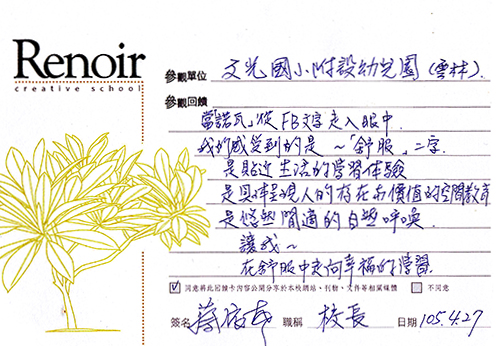 Renoir
creative school
參觀單位 文光國小附設幼兒園(雲林).
參觀回饋
當「諾瓦」從FB文字走入眼中.
我的感受到的是~「舒服」二字.
是貼近生活的學習體驗
是具體呈現人的存在和價值的空間教育
是悠然閒適的自然呼喚
讓我~
在舒服中走向幸福的學習.
☑ 同意將此回饋卡內容公開分享於本校網站、刊物、文件等相關媒體 □ 不同意
簽名 蔡 職稱 校長 日期 105.4.27